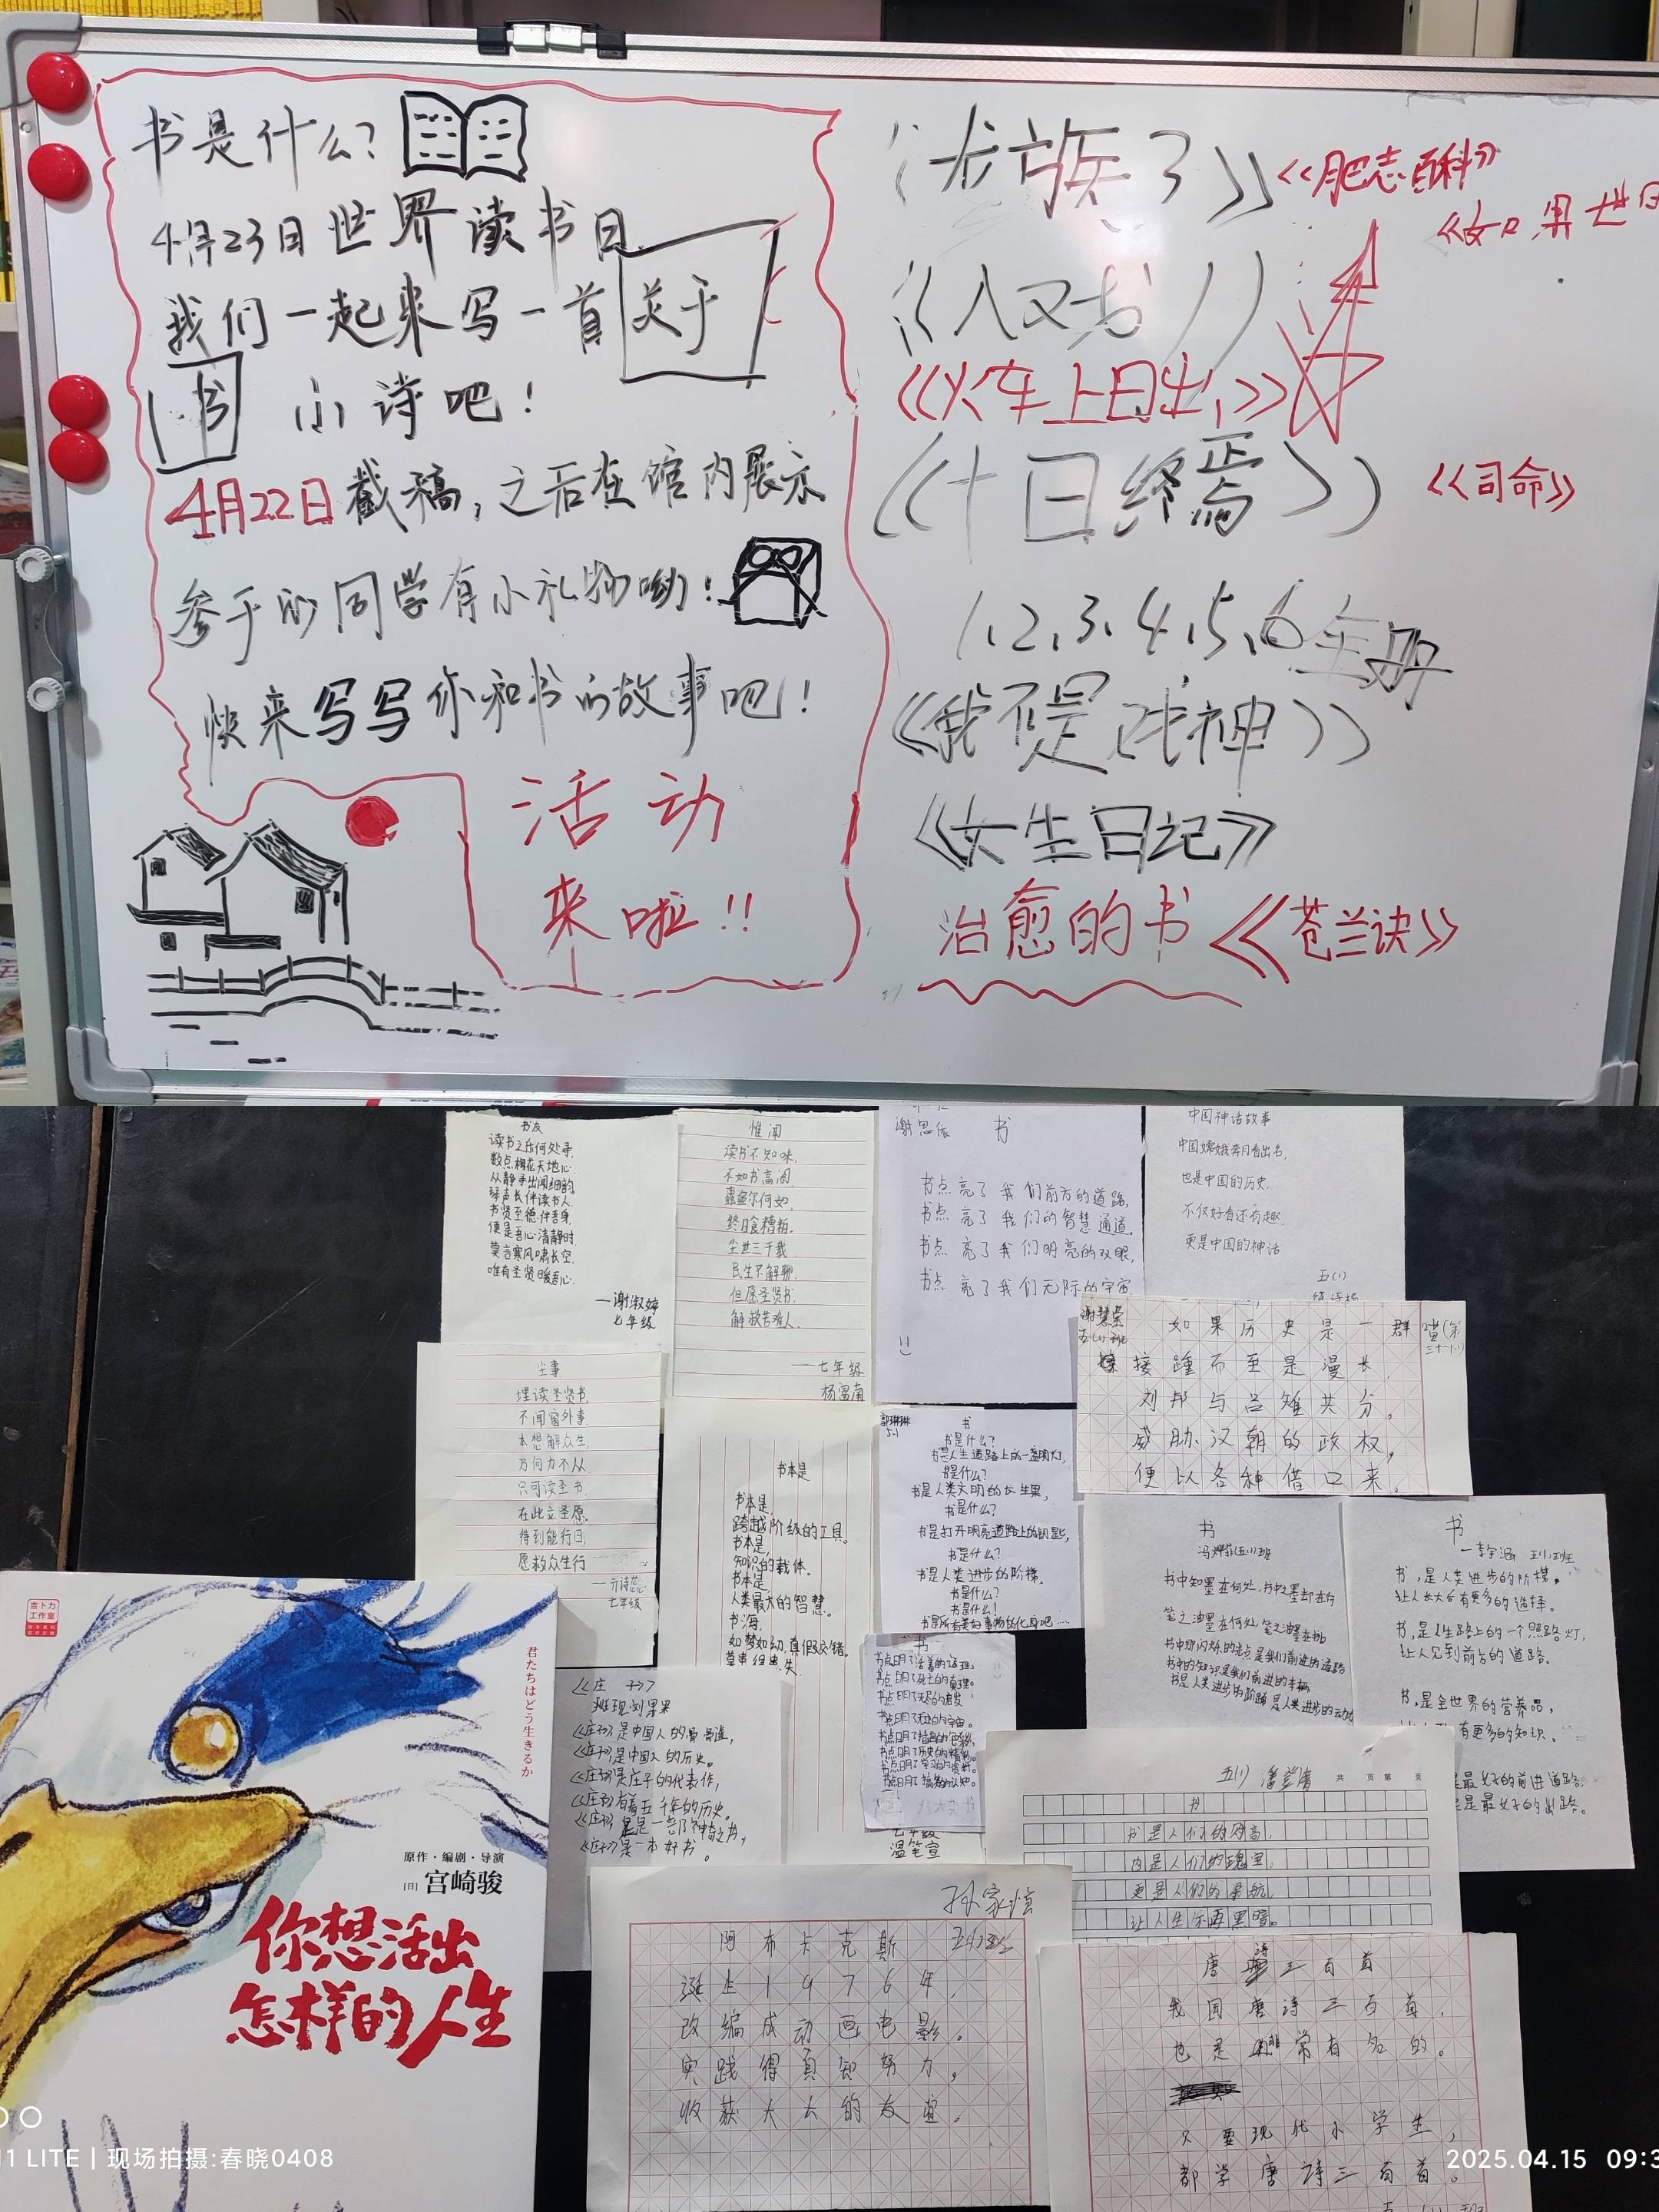 书是什么?
4月23日世界读书日
我们一起来写一首关于
书 小诗吧!
4月22日截稿,之后在馆内展示
参于的同学有小礼物呦!
快来写写你和书的故事吧!
活动
来啦!!
《龙族3》
《肥志百科》
《如果世
《人又书》
《火车上日出》
《十日终焉》
《司命》
1、2、3、4、5、6全班
《我不是戏神》
《女生日记》
治愈的书《苍兰诀》
书友
读书之乐何处寻,
数点梅花天地心
从静寻出闻细韵
琴声长伴读书人
书贤至德伴吾身,
便是吾心清静时
莫言寒风啸长空,
唯有圣贤暖吾心.
——谢淑婷
七年级
惟闻
读书不知味,
不如书高阁.
蠹鱼尔何如,
终日食糟粕.
尘世三千载
民生不解聊.
但愿圣贤书.
解救苦难人.
——七年级
书
书点亮了我们前方的道路,
书点亮了我们的智慧通道.
书点亮了我们明亮的双眼,
书点亮了我们无际的宇宙
中国神话故事
中国嫦娥奔月看出名,
也是中国的历史.
不仅好看还有趣,
更是中国的神话
五(1)
谢慧莹
五(1)班
如果历史是一群喵(第
接踵而至是漫长,
刘邦与吕雉共分,
威胁汉朝的政权,
便以各种借口来.
尘事
埋读圣贤书,
不闻窗外事.
本想解众生,
方何力不从
只可读圣书.
在此立圣愿.
待到能行日,
愿救众生行
七年级
书本是
书本是,
跨越阶级的工具.
书本是,
知识的载体.
书本是
人类最大的智慧.
书海,
七年级
温笔宣
5.1
书
书是什么?
书是人生道路上的一盏明灯,
书是什么?
书是人类文明的长生果,
书是什么?
书是打开明亮道路上的钥匙,
书是什么?
书是人类进步的阶梯.
书是什么?
书是什么!
书
书中知墨在何处,书中之墨却在行
笔之油墨在何处,笔之油墨在抽
书中那闪烁的亮点是我们前进的道路
书中的知识是我们前进的幸福
书是人类进步的阶梯 是人类进步的动力
书
—李宇涵 五(1)班
书,是人类进步的阶梯。
让人长大后有更多的选择。
书,是人生路上的一个照路灯,
让人见到前方的道路.
书,是全世界的营养品,
有更多的知识.
是最好的前进道路.
是最好的出路。
《庄子》
《庄子》是中国人的骨骨道,
《庄子》是中国人的历史。
《庄子》是庄子的代表作,
《庄子》有着五千年的历史。
《庄子》是一本好书。
书
五(1) 潘登唐 共 页 第 页
书
书是人们的
更是人们的
让人生不再黑暗。
孙家慎
阿布卡克斯
诞生1976年,
改编成动画电影。
实践得真知努力,
收获大大的友谊。
唐诗三百首
我国唐诗三百首,
也是非常有名的。
只要现代小学生,
都学唐诗三百首。
五(1)班
吉卜力
工作室
君たちはどう生きるか
原作·编剧·导演
[日] 宫崎骏
你想活出
怎样的人生
11 LITE | 现场拍摄:春晓0408
2025.04.15 09:3